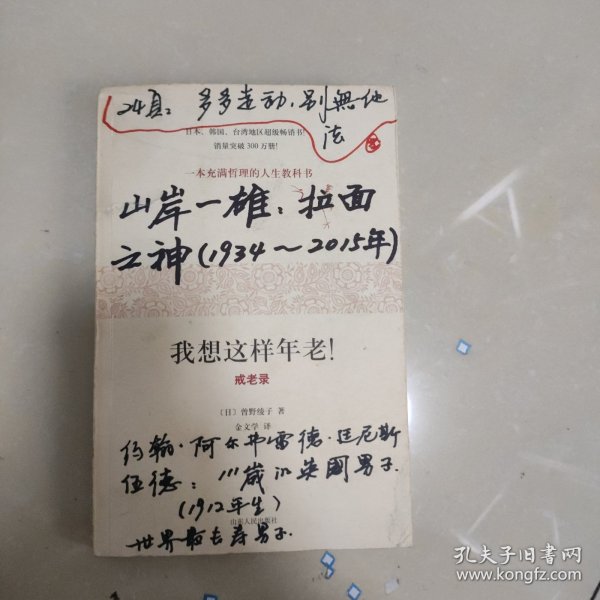 24頁：多多走动，别無他
法
日本、韩国、台湾地区超级畅销书!
销量突破300万册!
一本充满哲理的人生教科书
山岸一雄：拉面
之神(1934～2015年)
我想这样年老!
戒老录
〔日〕曾野绫子 著
金文学 译
约翰·阿尔弗雷德·廷尼斯
伍德：111歲的英國男子.
(1912年生)
山东人民出版社
世界最长寿男子
孔夫子旧书网
www.kongfz.com